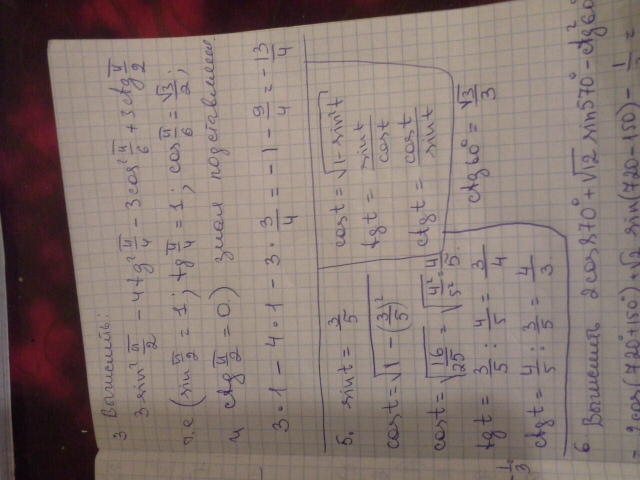 3 Вычислить:
3 sin² π/2 - 4 tg² π/4 - 3 cos² π/6 + 3 ctg π/2
т.к (sin π/2 = 1; tg π/4 = 1; cos π/6 = √3/2;
и ctg π/2 = 0.) знал подставляем
3·1 - 4·1 - 3·3/4 = -1 - 9/4 = -13/4
5. sin t = 3/5
cos t = √(1 - (3/5)²)
cos t = √(16/25) = √(4²/5²) = 4/5.
tg t = 3/5 : 4/5 = 3/4
ctg t = 4/5 : 3/5 = 4/3.
cos t = √(1 - sin² t)
tg t = sin t/cos t
ctg t = cos t/sin t
ctg 60° = √3/3
6 Вычислить 2 cos 870° + √12 sin 570° - ctg² 60°
= 2 cos (720° + 150°) + √2 sin (720 - 150) - 1/